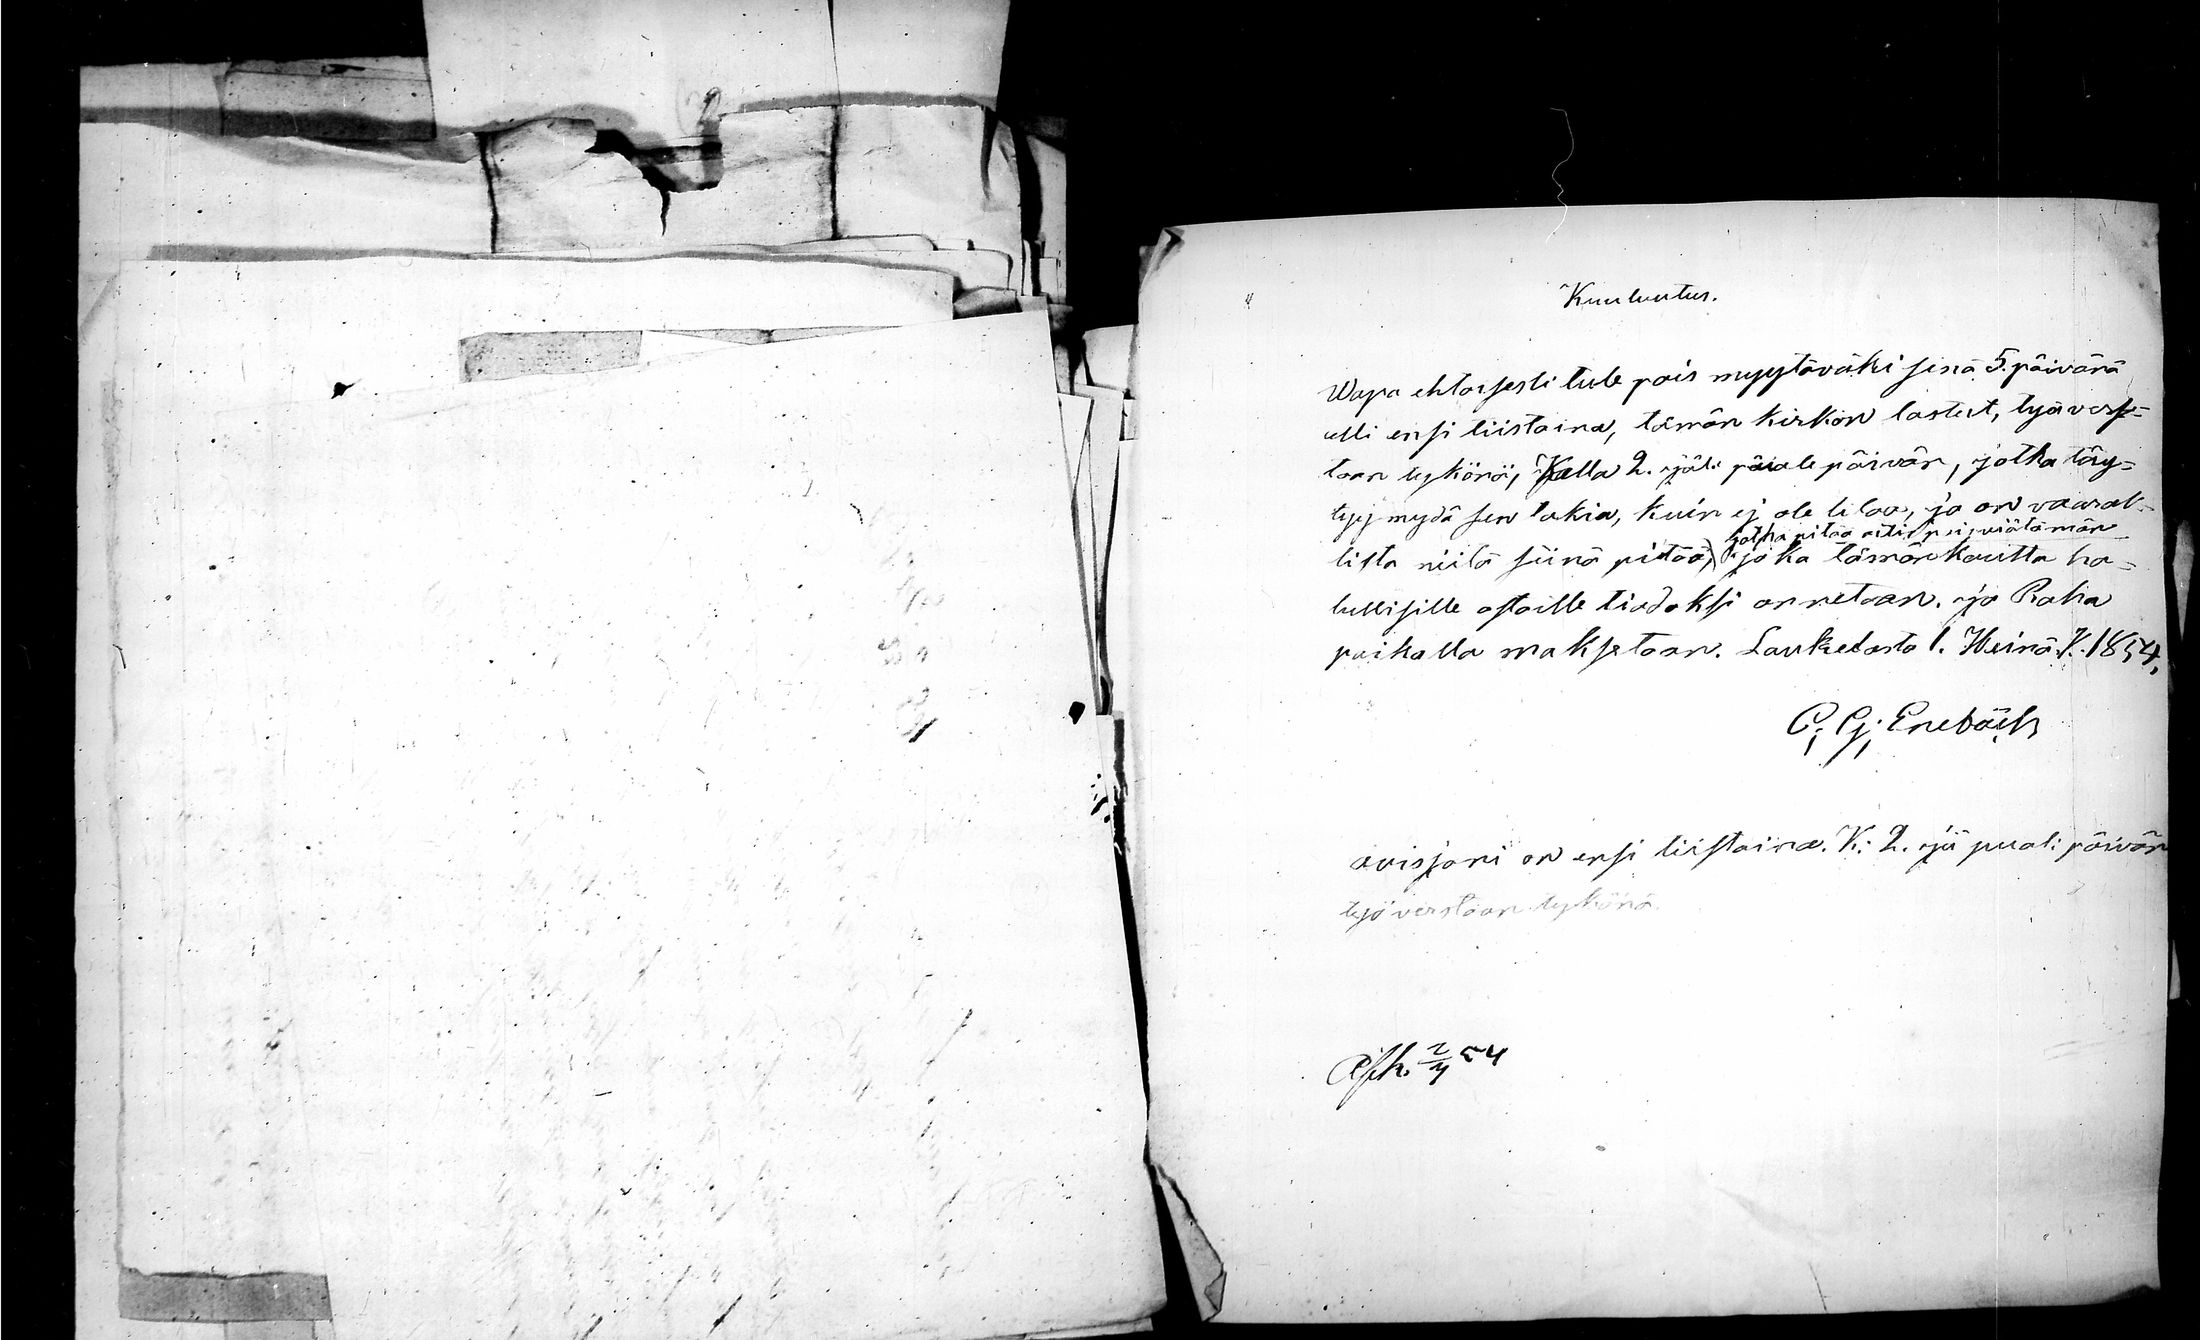 Kuuluutus.
Wapa ehtoisesti tule pois myytäväksi sinä 5. päivänä
elli ensi tiistaina, tämän kirkon lastut, työvers=
taan tykönä, Kello 2. jäli puole päivän, jotka täy=
tyy mydä sen takia, kuin ej ole tilaa, ja on vaaral-
jotka pitää
lista niitä siinä pitää, joka tämän kautta ha=
lullisille ostaille tiedoksi annetaan. ja Raha
paikalla maksetaan. Laukelasta 1. Heinä. K. 1854,
C. G. Enebäck
auisjoni on ensi tiistaina. K: 2. jä puoli päivän
työ verstaan tykönä.
54